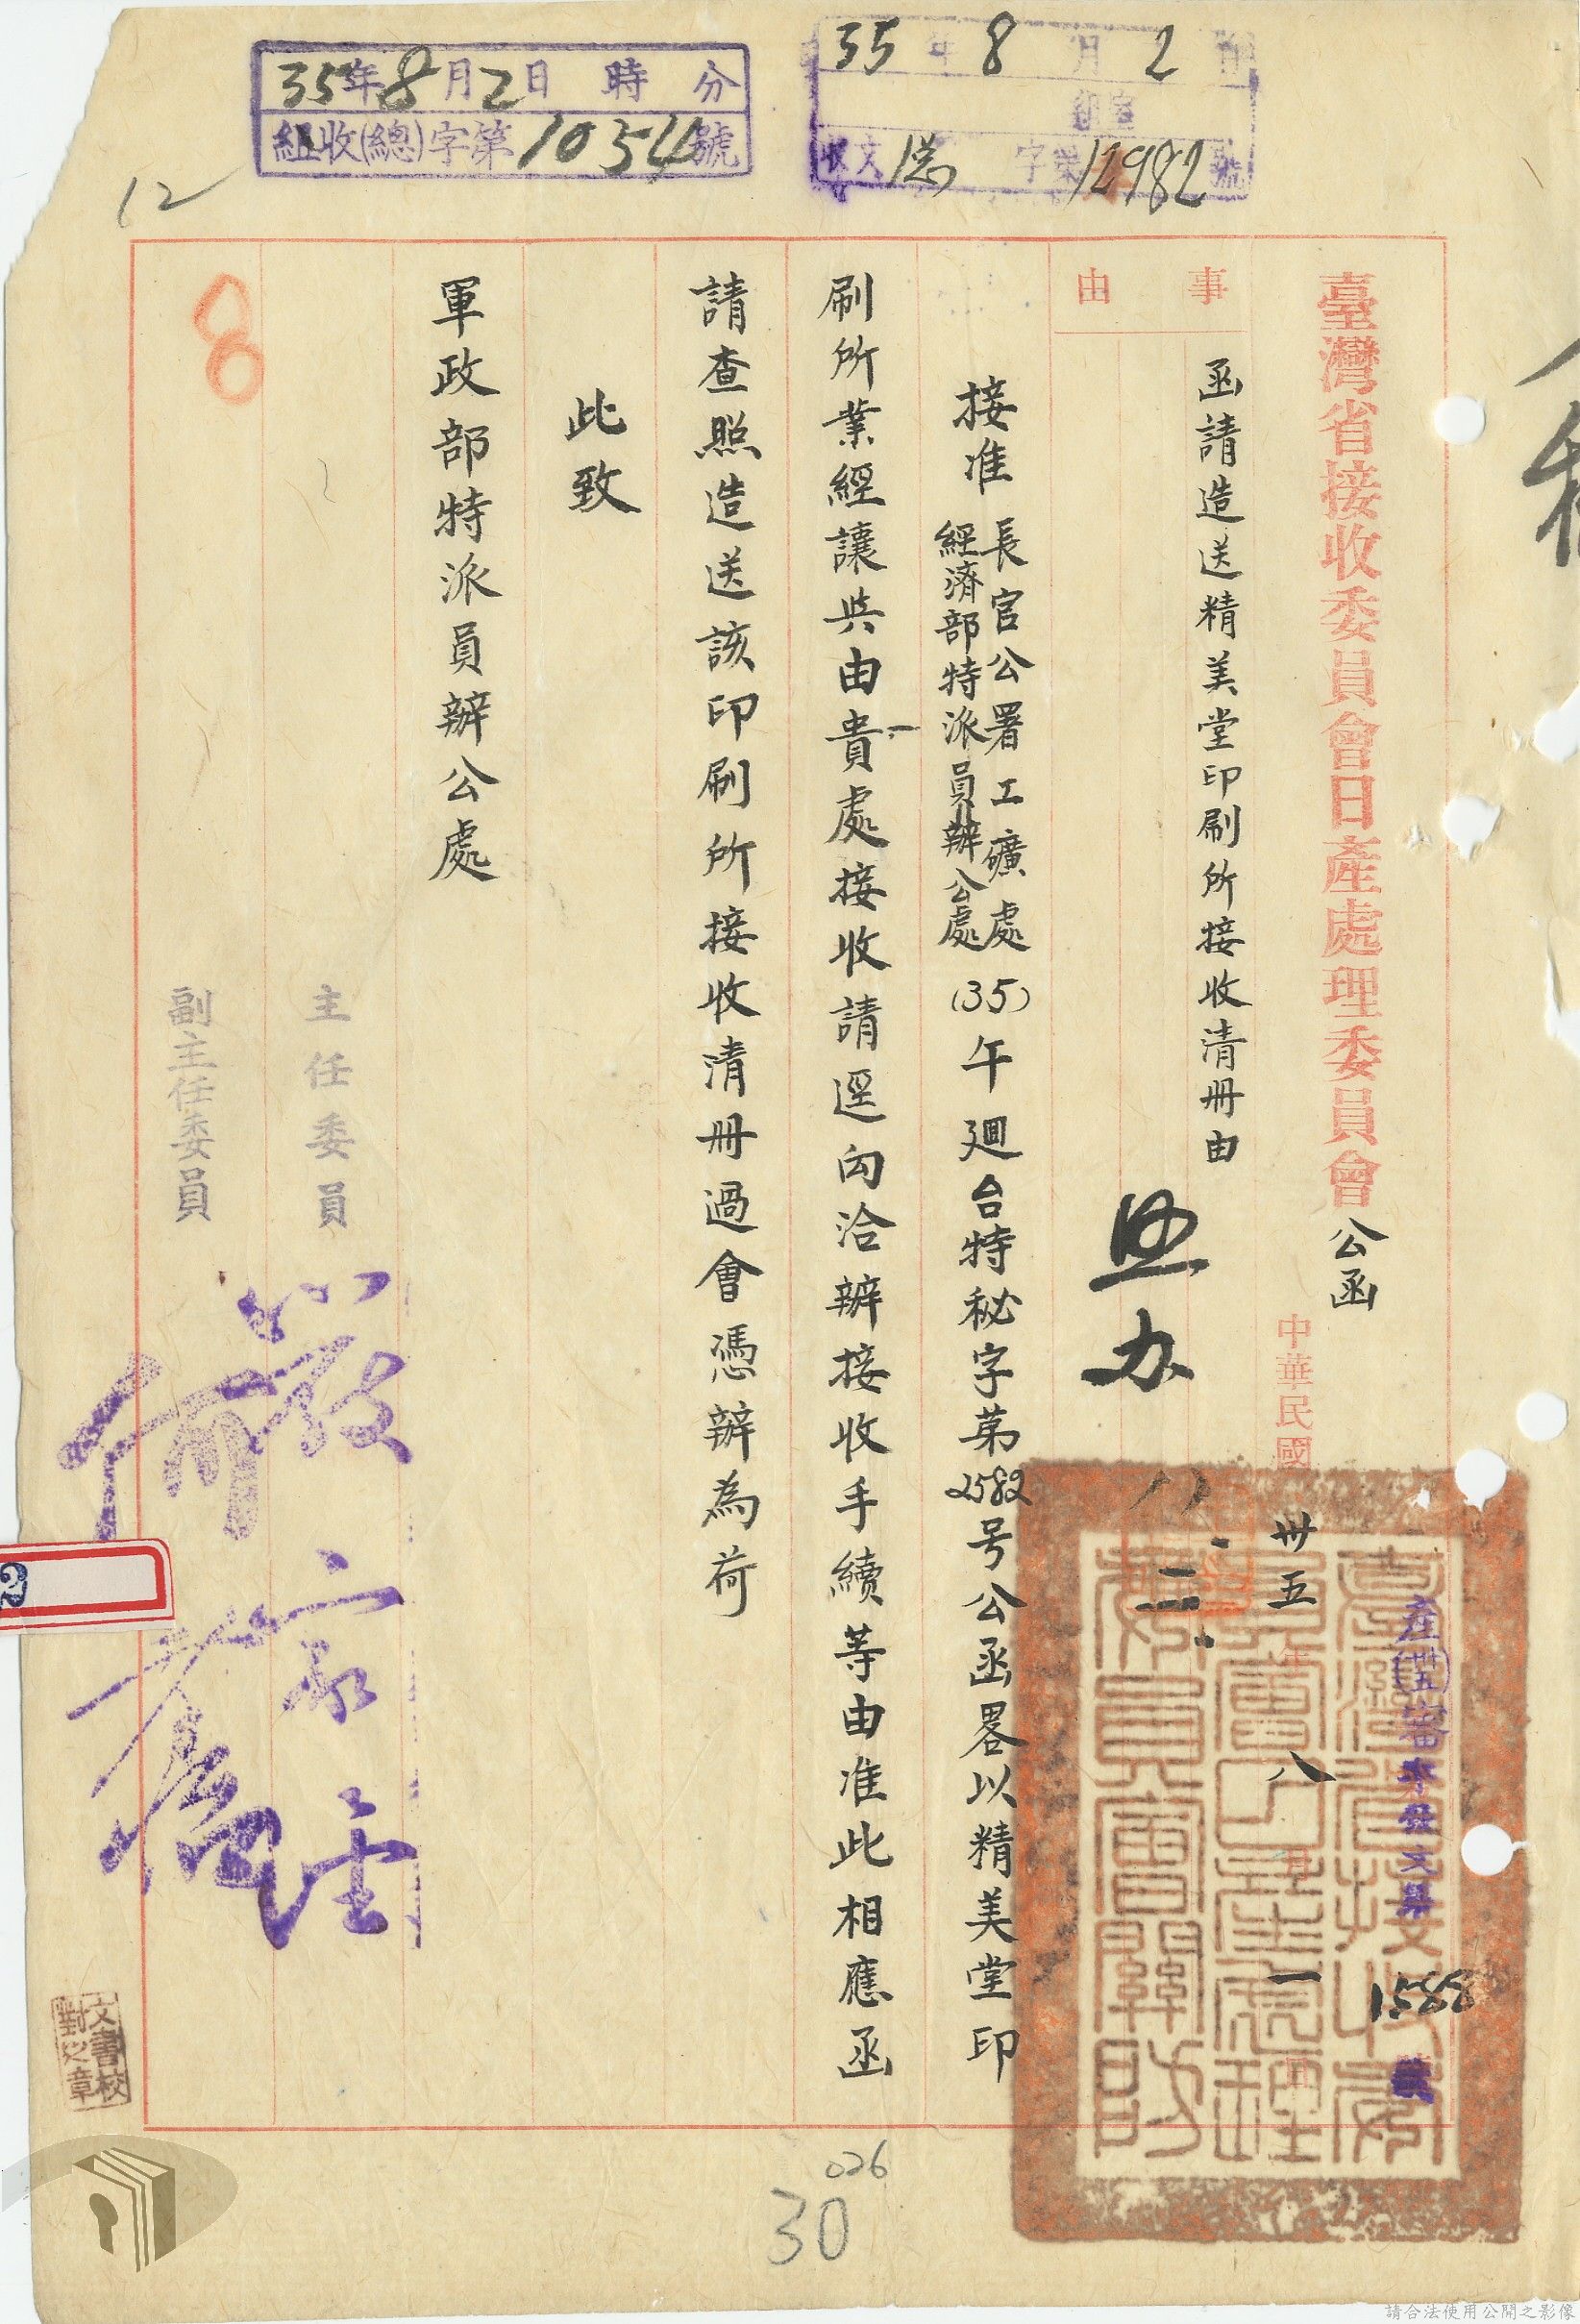 35年8月2日時分
組收(總)字第1054號
35年8月2日
組室
收文總字第12982號
12
臺灣省接收委員會日產處理委員會公函
中華民國卅五年八月一日
產(卅五)審字發文第1588號
事由
函請造送精美堂印刷所接收清冊由
照办
八、二、
接准長官公署工礦處
經濟部特派員辦公處
(35)午迴台特秘字第2582号公函畧以精美堂印
刷所業經讓與由貴處接收請逕向洽辦接收手續等由准此相應函
請查照造送該印刷所接收清冊過會憑辦為荷
此致
軍政部特派員辦公處
主任委員
嚴家淦
副主任委員
8
文書校對之章
臺灣省接收委員會日產處理委員會關防
026
30
請合法使用公開之影像